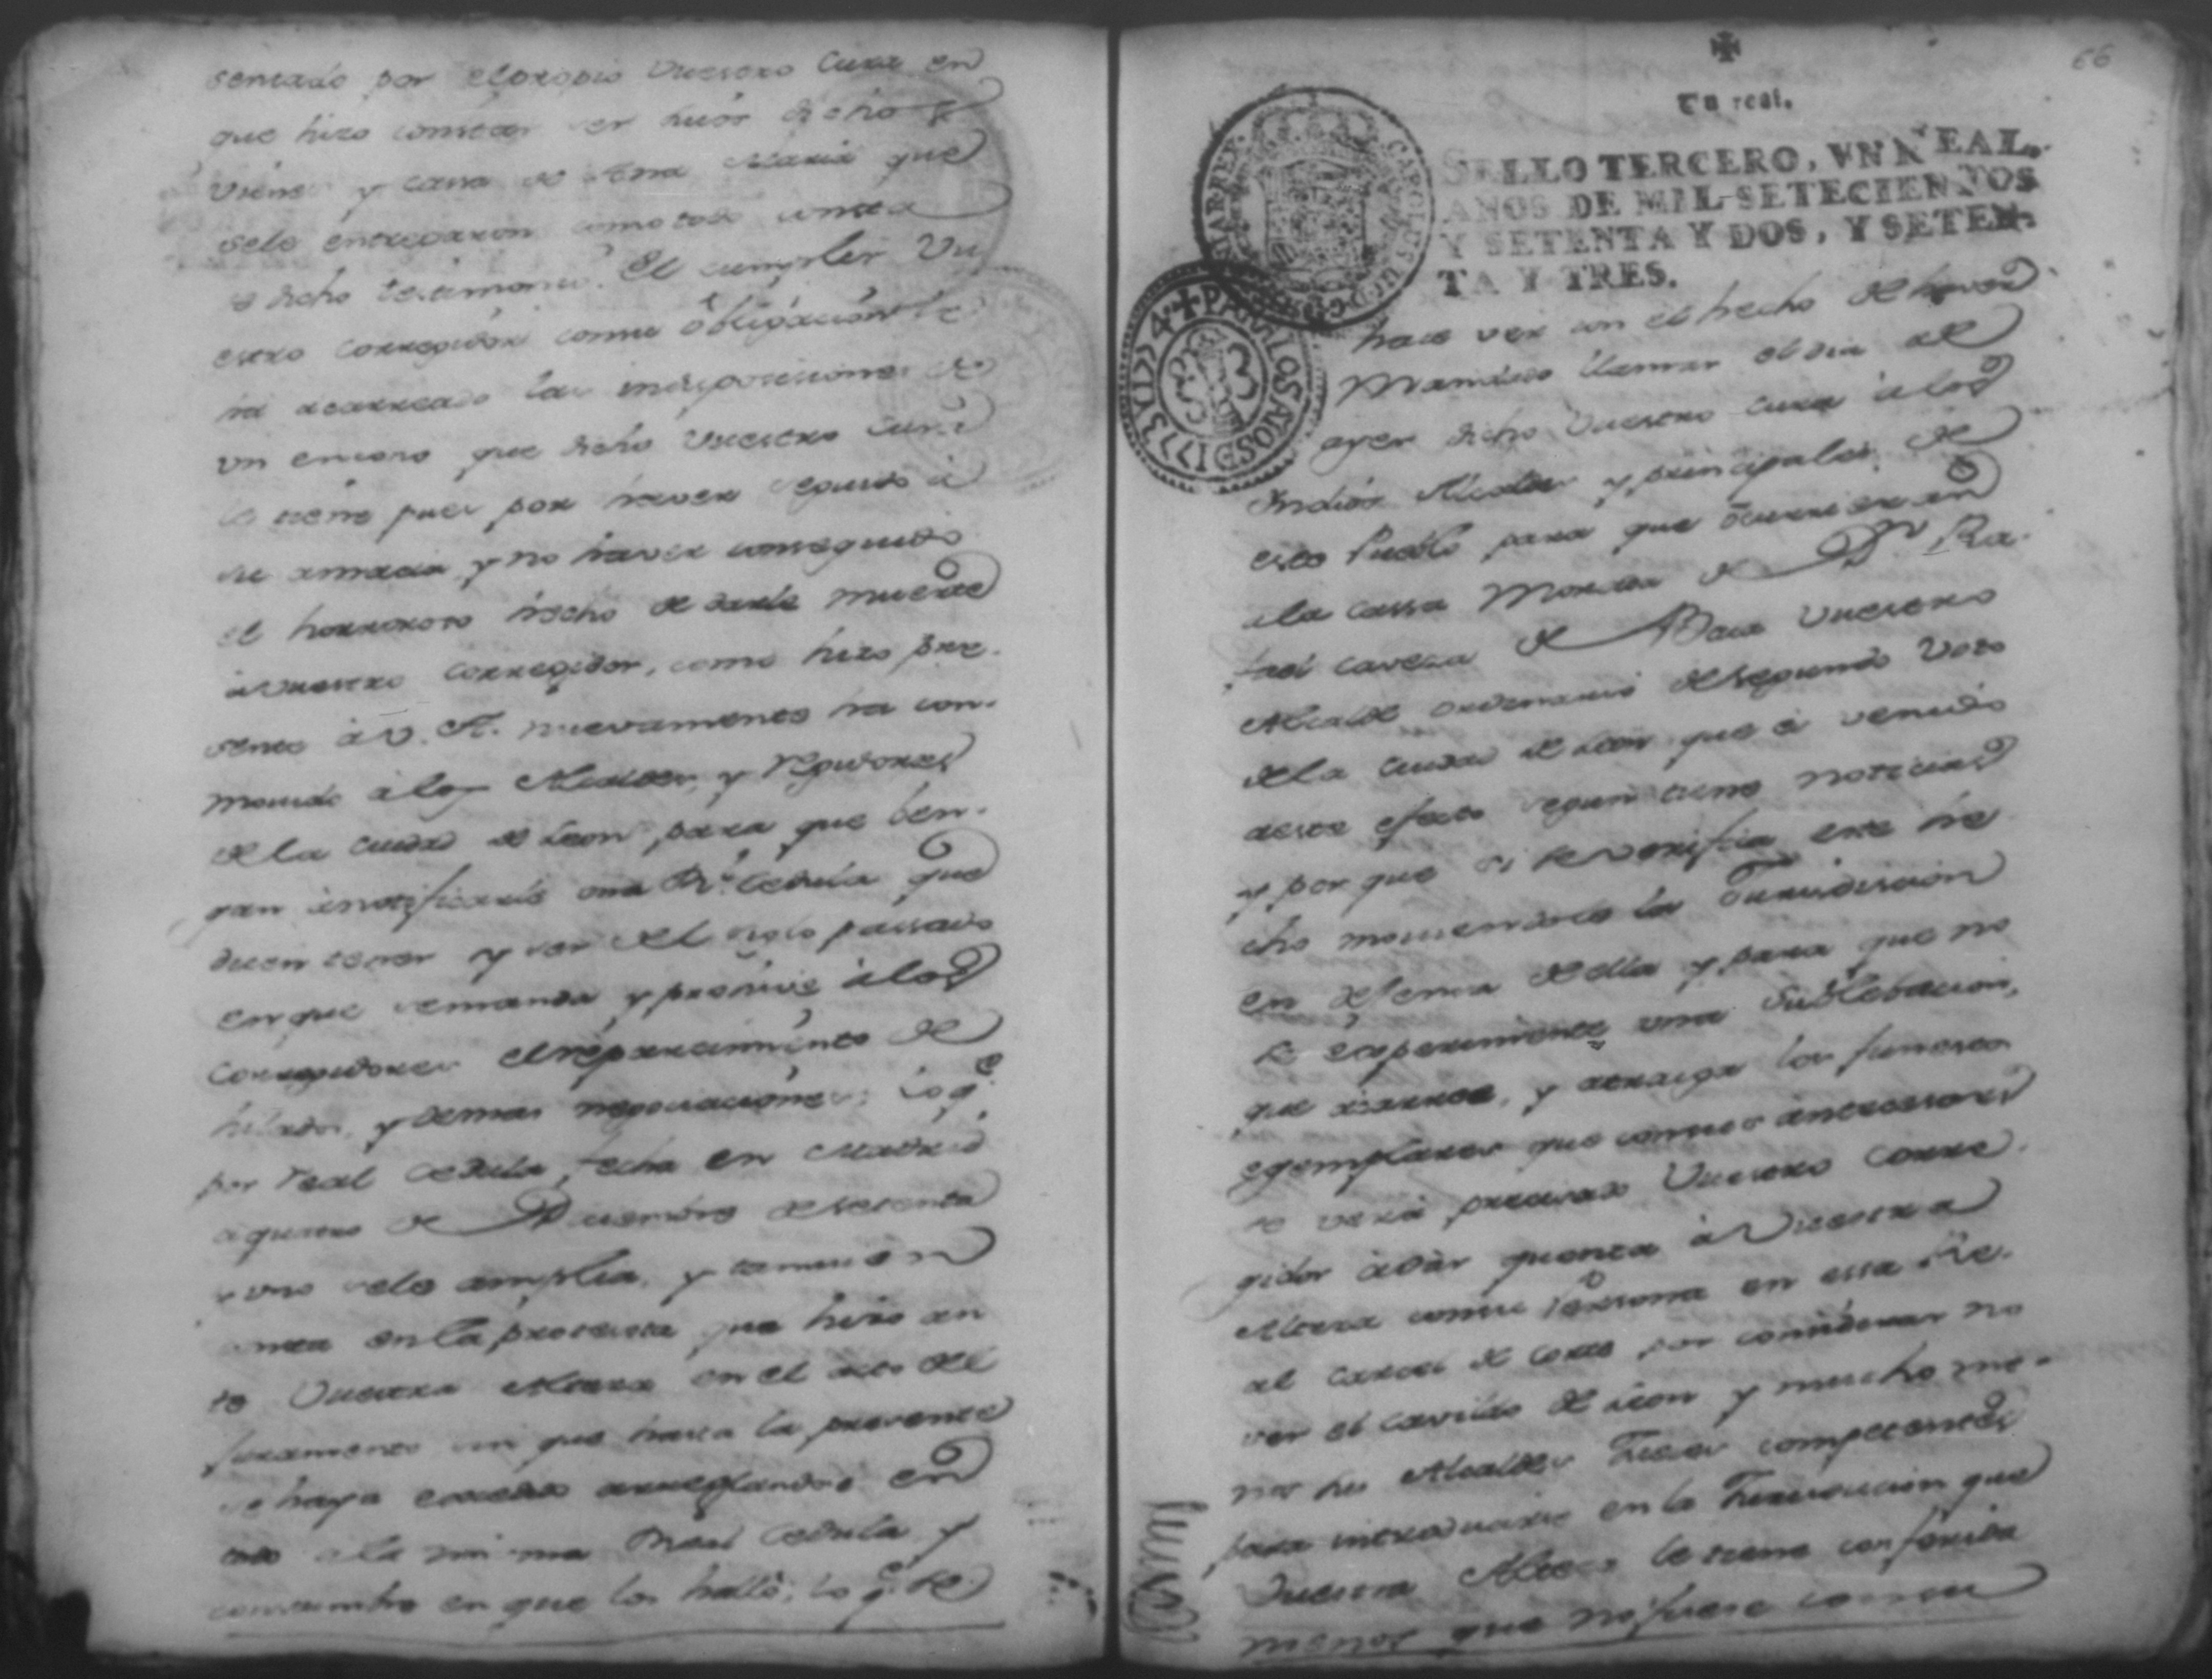 sentado por el propio Vuestro Cura en
que hizo constar ser hijos dicho
Viene y casa de Ana Maria que
sele entregaron como todo consta
dicho testimonio. El cumplir Vu
estro corregidor como obligacion le
ha acarreado las indisposiciones de
un encono que dicho Vuestro Cura
le tiene pues por haver seguido à
su amacia y no haver conseguido
el horroroso hecho de darle muerte
à Vuestro Corregidor, como hizo pre-
sente à V. A. nuevamente ha con-
movido à los Alcaldes, y Regidores
de la ciudad de Leon, para que ben-
gan à notificarle una Rl. Cedula que
dicen tener y ser del siglo passado
en que semanda y prohive à los
corregidores el repartimiento de
hilados, y demas negociaciones; lo q.e
por real cedula fecha en Madrid
à quatro de Diciembre de setenta
y uno sele amplia, y tambien
consta en la protesta que hizo an
te Vuestra Alteza en el acto del
juramento sin que hasta la presente
se haya exedido arreglandose en
todo a la misma Real Cedula y
costumbre en que los hallò, lo q.e se
66
Un real.
SELLO TERCERO, VN REAL,
AÑOS DE MIL SETECIENTOS
Y SETENTA Y DOS, Y SETEN-
TA Y TRES.
CAROLUS
PARA LOS AÑOS DE 1773 Y 1774
hace ver con el hecho de haver
Mandado llamar el dia de
ayer dicho Vuestro cura à los
Indios Alcaldes y principales de
este Pueblo para que ocurrieran
a la cassa Morada de Dn Ra-
fael Caveza de Baca Vuestro
Alcalde ordinario de segundo Voto
de la ciudad de Leon que à venido
à este efecto segun tiene noticias
y por que si se verifica este he
cho moviendose la Jurisdiccion
en defensa de ella y para que no
se experimente una Sublebacion,
que acarree, y atraiga los funestos
egemplares que con mis antecessores
se verà precisado Vuestro Corre-
gidor à dàr quenta à Vuestra
Alteza con su Persona en essa Re-
al Carcel de Corte por considerar no
ser el cavildo de Leon y mucho me-
nos sus Alcaldes Jueces competentes
para introducirse en la Jurisdiccion que
Vuestra Alteza le tiene conferida
menos que no fuese con su